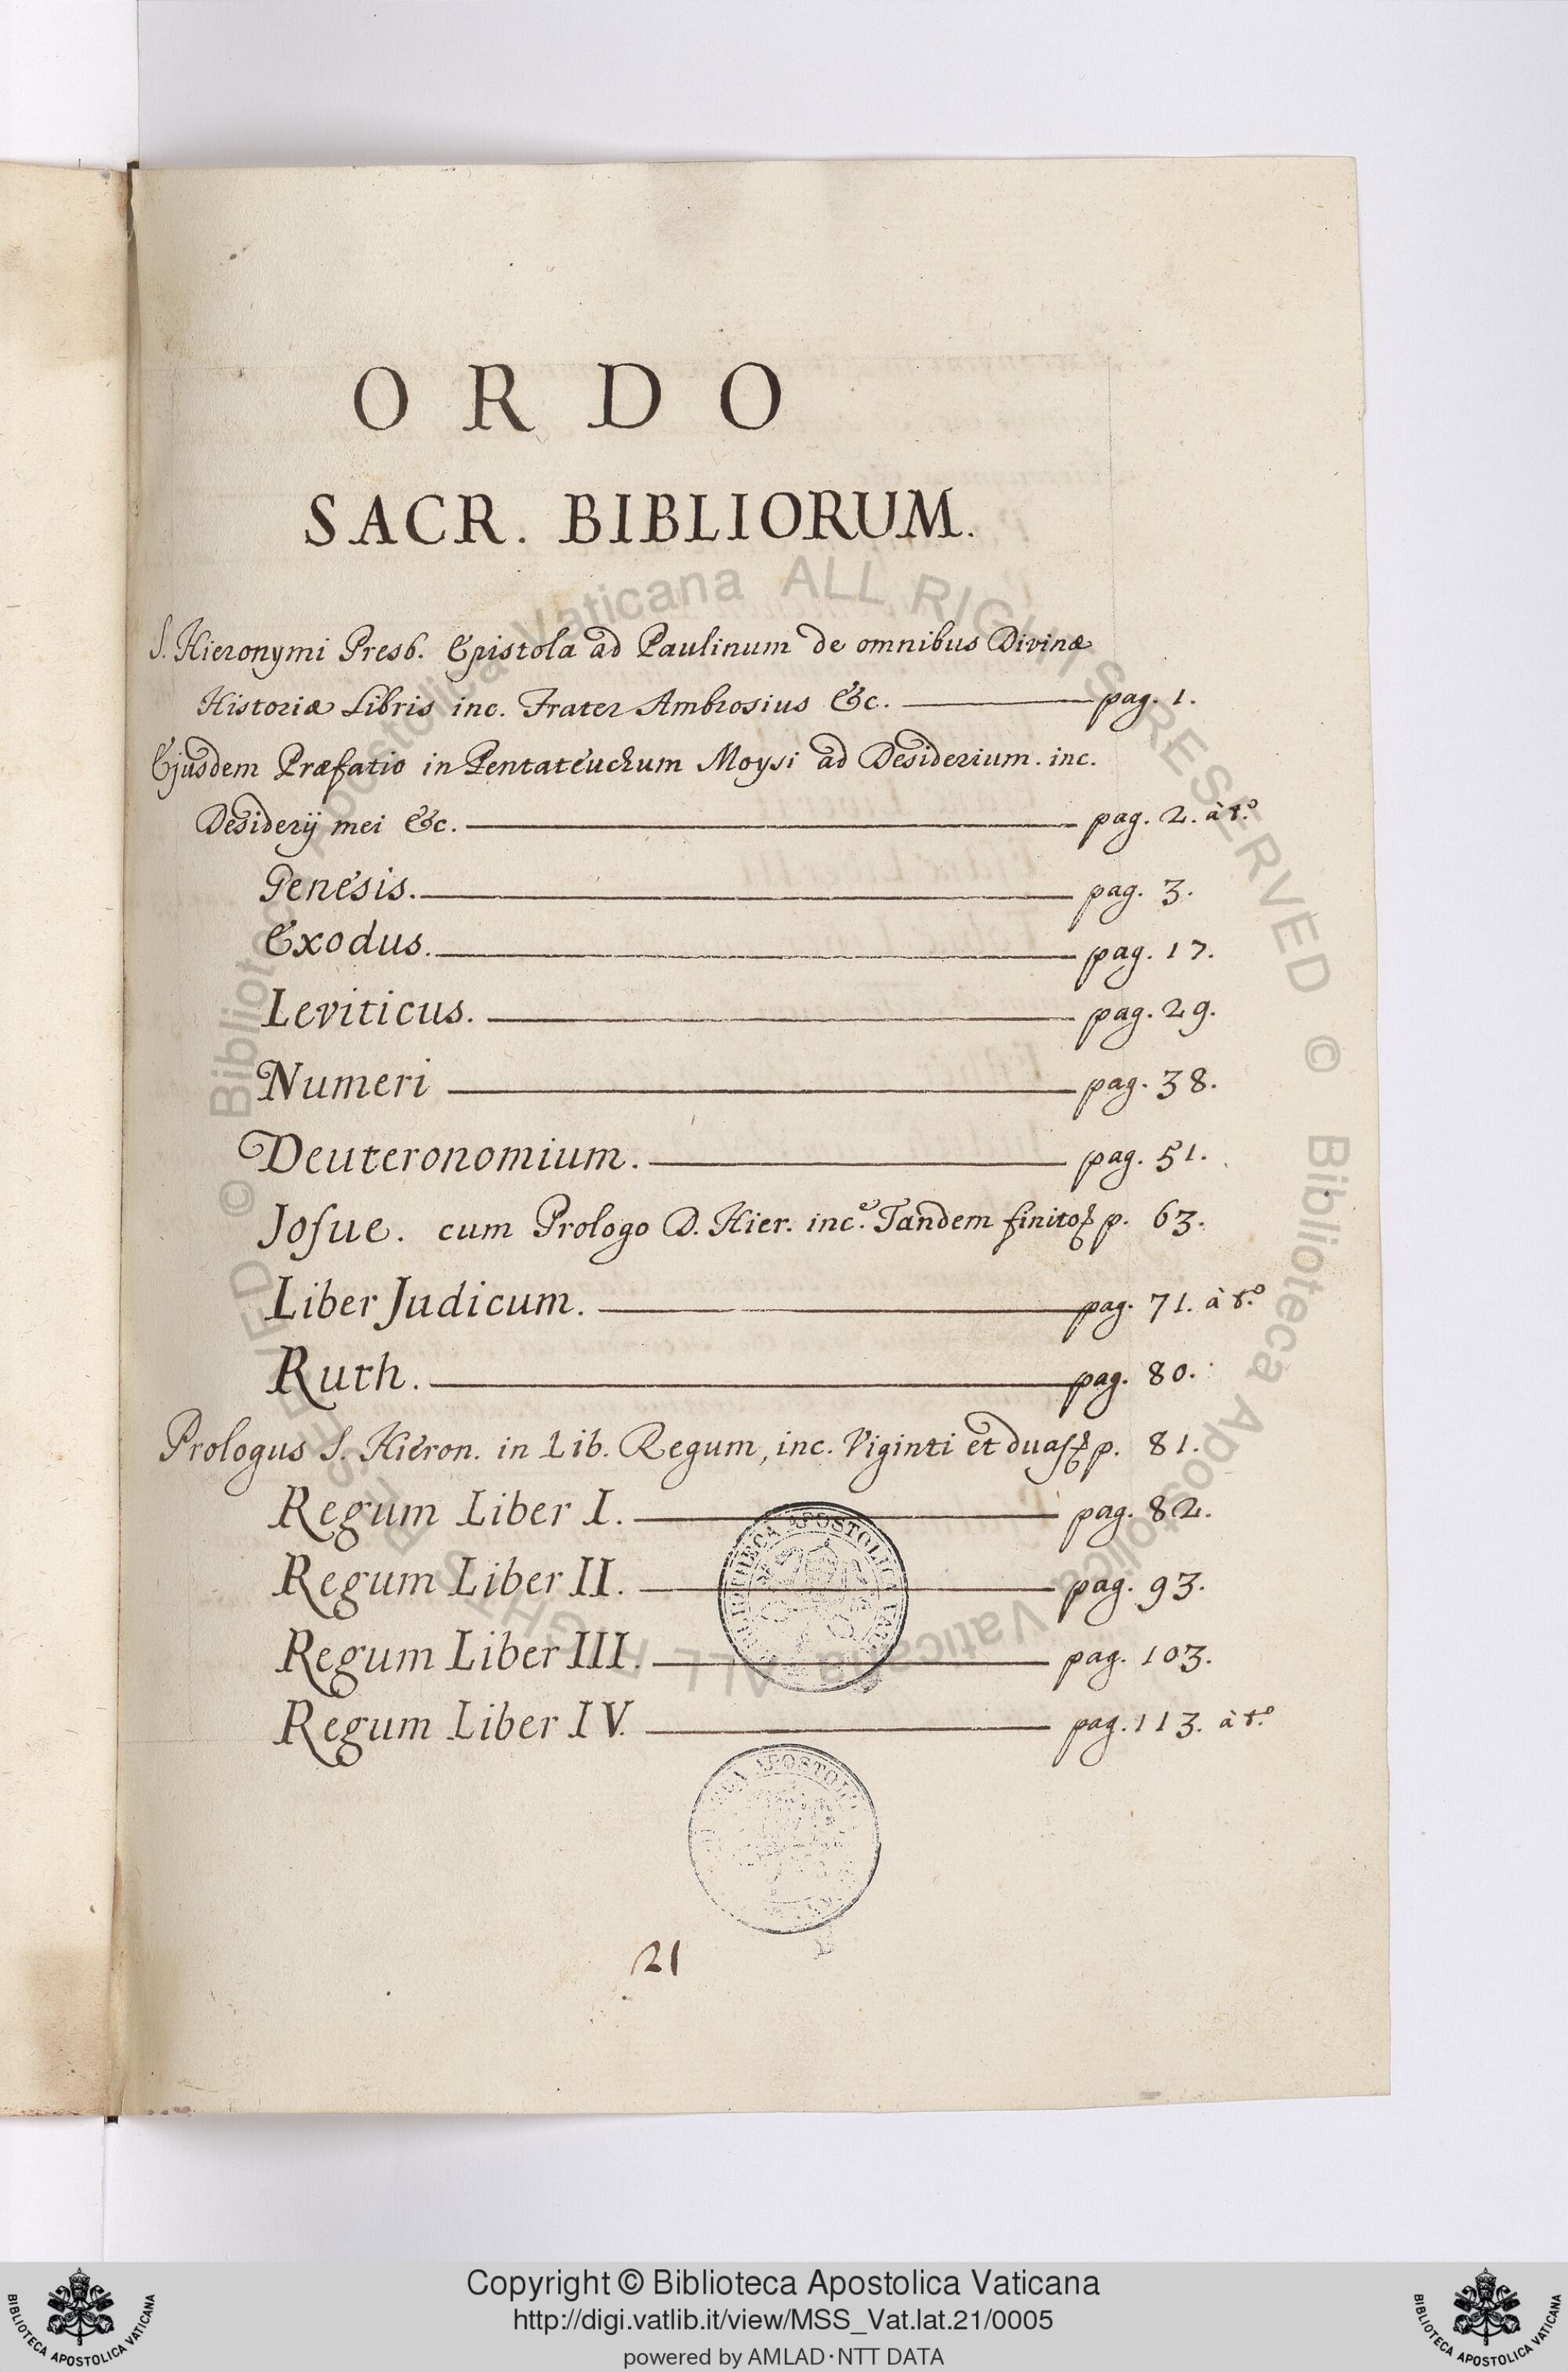 O R D O
SACR. BIBLIORUM.
S. Hieronymi Presb. Epistola ad Paulinum de omnibus Divinæ
Historiæ Libris inc. Frater Ambrosius &c. pag. 1.
Ejusdem Præfatio in Pentateuchum Moysi ad Desiderium. inc.
Desiderij mei &c. pag. 2. à t.º
Genesis. pag. 3.
Exodus. pag. 17.
Leviticus. pag. 29.
Numeri pag. 38.
Deuteronomium. pag. 51.
Josue. cum Prologo D. Hier. inc.e Tandem finito p. 63.
Liber Judicum. pag. 71. à t.º
Ruth. pag. 80.
Prologus S. Hieron. in Lib. Regum, inc. Viginti et duas p. 81.
Regum Liber I. pag. 82.
Regum Liber II. pag. 93.
Regum Liber III. pag. 103.
Regum Liber IV. pag. 113. à t.º
21
© Biblioteca Apostolica Vaticana ALL RIGHTS RESERVED © Biblioteca Apostolica Vaticana ALL RIGHTS RESERVED
Copyright © Biblioteca Apostolica Vaticana
http://digi.vatlib.it/view/MSS_Vat.lat.21/0005
powered by AMLAD·NTT DATA
BIBLIOTECA APOSTOLICA VATICANA
BIBLIOTECA APOSTOLICA VATICANA